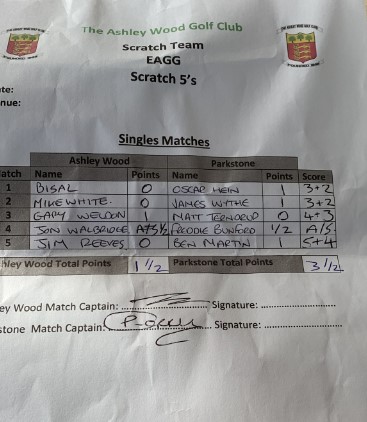 The Ashley Wood Golf Club
Scratch Team
EAGG
Scratch 5's
te:
nue:
Singles Matches
Ashley Wood Parkstone
atch Name Points Name Points Score
1 BISAL 0 OSCAR HEIN 1 3+2
2 MIKE WHITE. 0 JAMES WYTHE 1 3+2
3 GARY WELDON 1 MATT 0 4+3
4 JON WALBRIDGE 1/2 BUNFORD 1/2 A/S
5 JIM REEVES 0 BEN MARTIN 1 5+4
hley Wood Total Points 1 1/2 Parkstone Total Points 3 1/2
ey Wood Match Captain: Signature:
stone Match Captain: Signature: